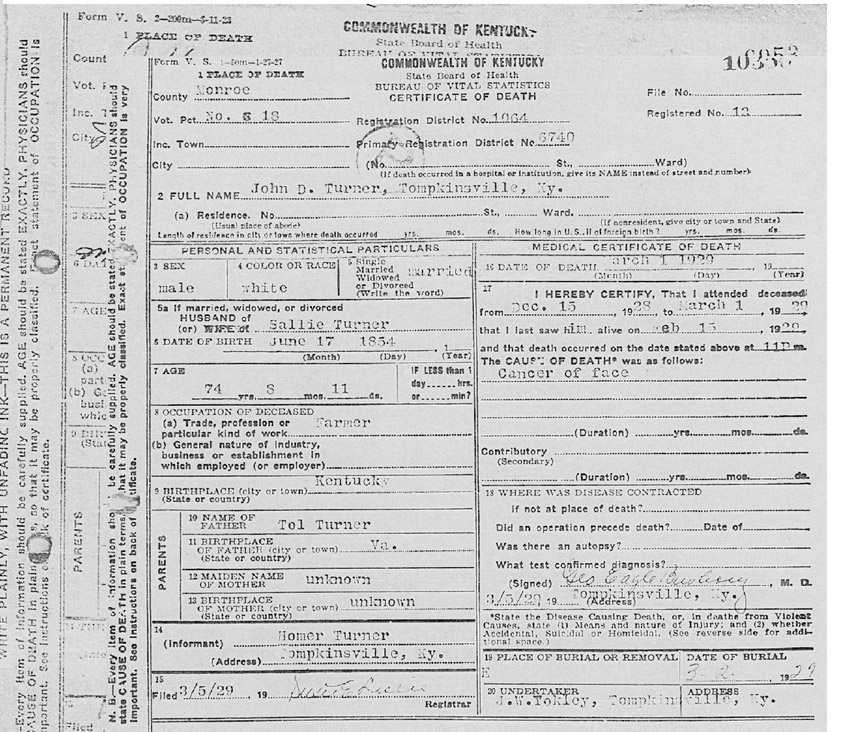 Form V. S. 2-200m-6-11-23
1 PLACE OF DEATH
COMMONWEALTH OF KENTUCKY
State Board of Health
BUREAU OF VITAL STATISTICS
Form V. S. 1-50m-1-27-27
COMMONWEALTH OF KENTUCKY
1 PLACE OF DEATH
State Board of Health
BUREAU OF VITAL STATISTICS
CERTIFICATE OF DEATH
File No.
County Monroe
Registered No. 12
Vot. Pct. No. 18
Registration District No. 1064
Inc. Town
Primary Registration District No. 6740
City (No. St., Ward)
(If death occurred in a hospital or institution, give its NAME instead of street and number)
2 FULL NAME John D. Turner, Tompkinsville, Ky.
(a) Residence. No. St., Ward.
(Usual place of abode) (If nonresident, give city or town and State)
Length of residence in city or town where death occurred yrs. mos. ds. How long in U. S., if of foreign birth? yrs. mos. ds.
PERSONAL AND STATISTICAL PARTICULARS
3 SEX male
4 COLOR OR RACE white
5 Single Married Widowed or Divorced (Write the word) married
5a If married, widowed, or divorced
HUSBAND of
(or) WIFE of Sallie Turner
6 DATE OF BIRTH June 17 1854
(Month) (Day) (Year)
7 AGE
74 yrs. 8 mos. 11 ds.
IF LESS than 1
day hrs.
or min?
8 OCCUPATION OF DECEASED
(a) Trade, profession or
particular kind of work Farmer
(b) General nature of industry,
business or establishment in
which employed (or employer)
9 BIRTHPLACE (city or town) Kentucky
(State or country)
PARENTS
10 NAME OF
FATHER Tol Turner
11 BIRTHPLACE
OF FATHER (city or town) Va.
(State or country)
12 MAIDEN NAME
OF MOTHER unknown
13 BIRTHPLACE
OF MOTHER (city or town) unknown
(State or country)
14
(Informant) Homer Turner
(Address) Tompkinsville, Ky.
15
Filed 3/5/29, 19
Registrar
MEDICAL CERTIFICATE OF DEATH
16 DATE OF DEATH arch 1 1929 19
(Month) (Day) (Year)
17
I HEREBY CERTIFY, That I attended deceased
from Dec. 15, 1928 to March 1, 1929
that I last saw him alive on Feb 15, 1929,
and that death occurred on the date stated above at 11P m.
The CAUSE OF DEATH* was as follows:
Cancer of face
(Duration) yrs. mos. ds.
Contributory
(Secondary)
(Duration) yrs. mos. ds.
18 WHERE WAS DISEASE CONTRACTED
If not at place of death?
Did an operation precede death? Date of
Was there an autopsy?
What test confirmed diagnosis?
(Signed) M. D.
3/5/29 19 Tompkinsville, Ky.
(Address)
*State the Disease Causing Death, or, in deaths from Violent
Causes, state (1) Means and nature of Injury; and (2) whether
Accidental, Suicidal or Homicidal. (See reverse side for addi-
tional space.)
19 PLACE OF BURIAL OR REMOVAL
DATE OF BURIAL
3-2, 1929
20 UNDERTAKER ADDRESS
J.W.Yokley, Tompkinsville, Ky.
N. B.—Every item of information should be carefully supplied. AGE should be stated EXACTLY. PHYSICIANS should
state CAUSE OF DEATH in plain terms, so that it may be properly classified. Exact statement of OCCUPATION is very
important. See Instructions on back of certificate.